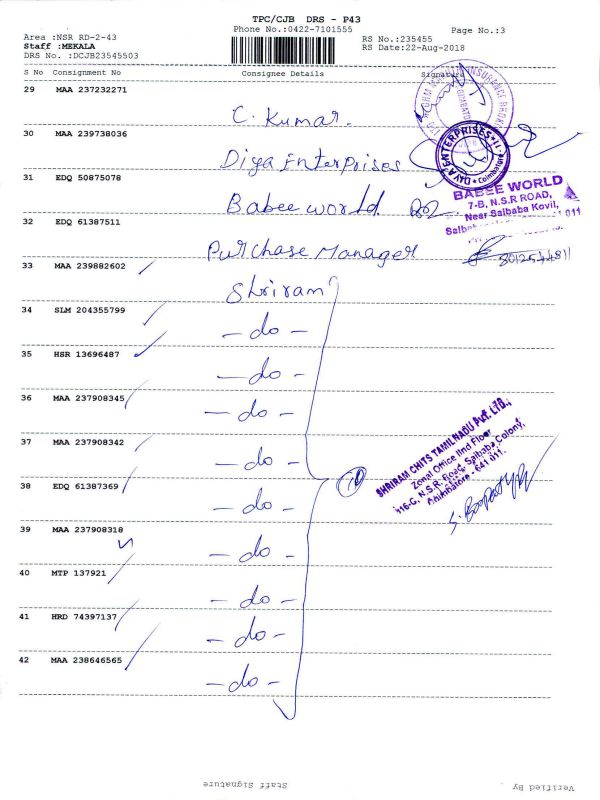 TPC/CJB DRS - P43
Phone No.:0422-7101555
Page No.:3
Area :NSR RD-2-43
RS No.:235455
Staff :MEKALA
RS Date:22-Aug-2018
DRS No. :DCJB23545503
S No Consignment No Consignee Details Signature
29 MAA 237232271
C. Kumar.
30 MAA 239738036
Diya Enterprises
DIYA ENTERPRISES Coimbatore - 11
31 EDQ 50875078
Babee world.
BABEE WORLD
7-B, N.S.R ROAD,
Near Saibaba Kovil,
011
32 EDQ 61387511
Purchase Manager
33 MAA 239882602
Shriram
34 SLM 204355799
- do -
35 HSR 13696487
- do -
36 MAA 237908345
- do -
37 MAA 237908342
- do -
SHRIRAM CHITS TAMILNADU PVT. LTD.,
Zonal Office IInd Floor
116-C, N.S.R. Road, Saibaba Colony,
Coimbatore - 641 011.
10
38 EDQ 61387369
- do -
39 MAA 237908318
- do -
40 MTP 137921
- do -
41 HRD 74397137
- do -
42 MAA 238646565
- do -
Staff Signature
Verified By